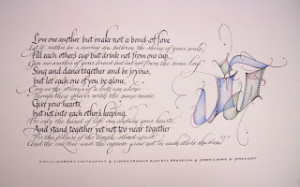 Love one another but make not a bond of love
Let it rather be a moving sea between the shores of your souls.
Fill each other's cup but drink not from one cup.
Give one another of your bread but eat not from the same loaf.
Sing and dance together and be joyous,
but let each one of you be alone,
Even as the strings of a lute are alone
though they quiver with the same music.
Give your hearts,
but not into each other's keeping.
For only the hand of life can contain your hearts.
And stand together yet not too near together
For the pillars of the temple stand apart
And the oak tree and the cypress grow not in each other's shadow